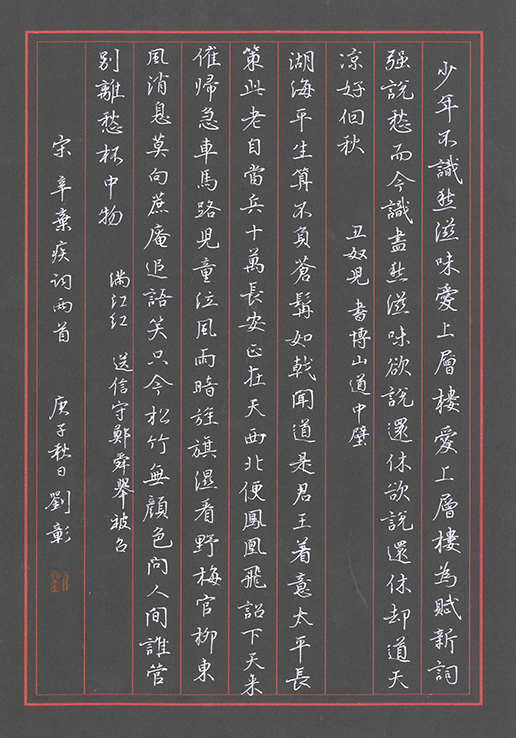 少年不識愁滋味愛上層樓愛上層樓為賦新詞
强說愁而今識盡愁滋味欲說還休欲說還休却道天
凉好個秋
丑奴児 書博山道中壁
湖海平生算不負蒼髯如戟聞道是君王着意太平長
策此老自當兵十萬長安正在天西北便鳳凰飛詔下天来
催帰急車馬路児童泣風雨暗旌旗濕看野梅官柳東
風消息莫向蔗庵追語笑只今松竹無顔色問人間誰管
别離愁杯中物
滿江红 送信守鄭舜舉被召
宋 辛棄疾词兩首 庚子秋日 劉彰